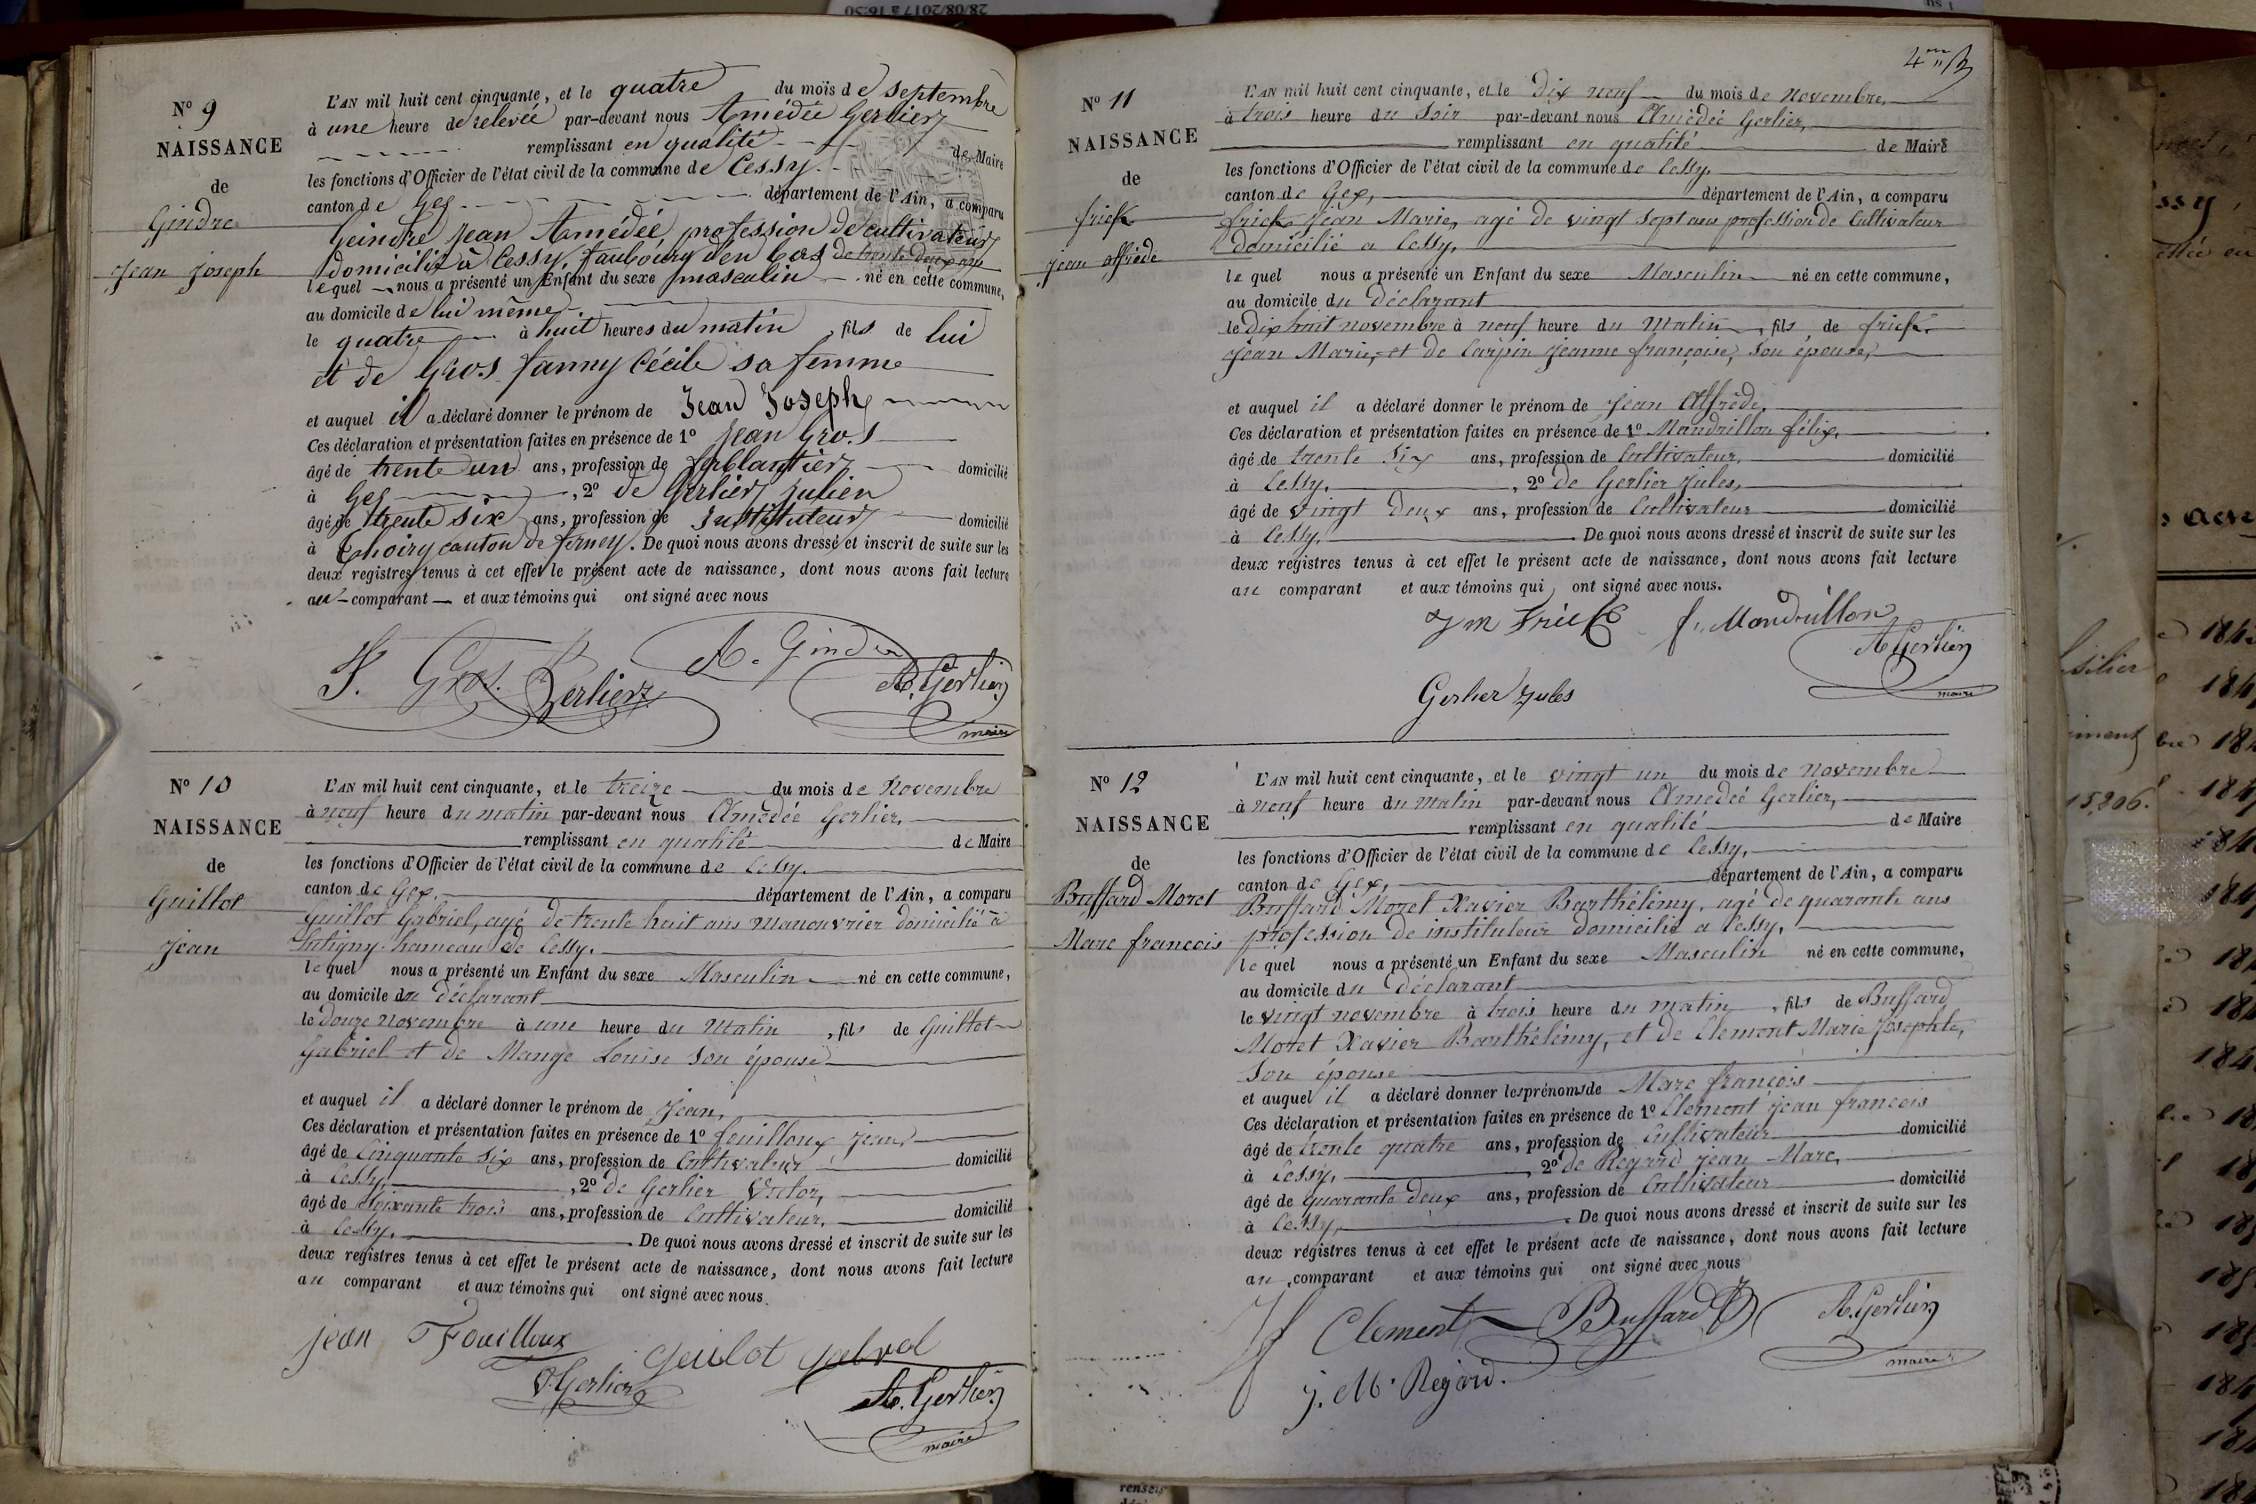 28/08/2017 à 16:50
N° 9
NAISSANCE
de
Gindre
Jean Joseph
L'AN mil huit cent cinquante, et le quatre du mois de septembre
à une heure de relevée par-devant nous Amédée Gerlier
remplissant en qualité de Maire
les fonctions d'Officier de l'état civil de la commune de Cessy.
canton de Gex département de l'Ain, a comparu
Geindre Jean Amédée profession de cultivateur
domicilié à Cessy, faubourg d'en bas de trente deux ans
lequel nous a présenté un Enfant du sexe masculin né en cette commune,
au domicile de lui même
le quatre à huit heures du matin, fils de lui
et de Gros fanny Cécile sa femme
et auquel il a déclaré donner le prénom de Jean Joseph
Ces déclaration et présentation faites en présence de 1° Jean Gros
âgé de trente un ans, profession de ferblantier domicilié
à Gex, 2° de Gerlier Julien
âgé de trente six ans, profession de Instituteur domicilié
à Thoiry canton de ferney. De quoi nous avons dressé et inscrit de suite sur les
deux registres tenus à cet effet le présent acte de naissance, dont nous avons fait lecture
au comparant et aux témoins qui ont signé avec nous
J. Gros. Gerlier A. Gindre A. Gerlier
maire
N° 10
NAISSANCE
de
Guillot
Jean
L'AN mil huit cent cinquante, et le treize du mois de Novembre
à neuf heure du matin par-devant nous Amédée Gerlier,
remplissant en qualité de Maire
les fonctions d'Officier de l'état civil de la commune de Cessy.
canton de Gex. département de l'Ain, a comparu
Guillot Gabriel, agé de trente huit ans Manouvrier domicilié à
hameau de Cessy.
lequel nous a présenté un Enfant du sexe Masculin né en cette commune,
au domicile du déclarant
le douze Novembre à une heure du Matin, fils de Guillot
Gabriel et de Mange Louise son épouse
et auquel il a déclaré donner le prénom de Jean,
Ces déclaration et présentation faites en présence de 1° fouilloux jean
âgé de Cinquante six ans, profession de Cultivateur domicilié
à Cessy, 2° de Gerlier Victor,
âgé de Soixante trois ans, profession de Cultivateur, domicilié
à Cessy. De quoi nous avons dressé et inscrit de suite sur les
deux registres tenus à cet effet le présent acte de naissance, dont nous avons fait lecture
au comparant et aux témoins qui ont signé avec nous.
jean Fouilloux
V. Gerlier
A. Gerlier
maire
N° 11
NAISSANCE
de
frick
jean alfrède
L'AN mil huit cent cinquante, et le Dix neuf du mois de Novembre,
à trois heure du Soir par-devant nous Amédée Gerlier,
remplissant en qualité de Maire
les fonctions d'Officier de l'état civil de la commune de Cessy,
canton de Gex, département de l'Ain, a comparu
frick Jean Marie, agé de vingt sept ans profession de Cultivateur
domicilié a Cessy,
lequel nous a présenté un Enfant du sexe Masculin né en cette commune,
au domicile du Déclarant
le dix huit novembre à neuf heure du Matin, fils de frick
Jean Marie, et de Carpin Jeanne françoise, Son épouse,
et auquel il a déclaré donner le prénom de Jean Alfrède,
Ces déclaration et présentation faites en présence de 1° Mandrillon félix,
âgé de trente Six ans, profession de Cultivateur, domicilié
à Cessy, 2° de Gerlier Jules,
âgé de vingt Deux ans, profession de Cultivateur domicilié
à Cessy, De quoi nous avons dressé et inscrit de suite sur les
deux registres tenus à cet effet le présent acte de naissance, dont nous avons fait lecture
au comparant et aux témoins qui ont signé avec nous.
J m Frick f. Mandrillon
A Gerlier
maire
Gerlier Jules
N° 12
NAISSANCE
de
Buffard Moret
Marc francois
L'AN mil huit cent cinquante, et le vingt un du mois de Novembre
à neuf heure du Matin par-devant nous Amédée Gerlier,
remplissant en qualité de Maire
les fonctions d'Officier de l'état civil de la commune de Cessy,
canton de Gex, département de l'Ain, a comparu
Buffard Moret Xavier Barthélémy, agé de quarante ans
profession de instituteur domicilié a Cessy,
lequel nous a présenté un Enfant du sexe Masculin né en cette commune,
au domicile du déclarant
le vingt novembre à trois heure du matin, fils de Buffard
Moret Xavier Barthélémy, et de Clement Marie Josephte,
Son épouse
et auquel il a déclaré donner les prénoms de Marc françois
Ces déclaration et présentation faites en présence de 1° Clement jean francois
âgé de trente quatre ans, profession de Cultivateur domicilié
à Cessy, 2° de Regard jean Marc,
âgé de quarante deux ans, profession de Cultivateur domicilié
à Cessy, De quoi nous avons dressé et inscrit de suite sur les
deux registres tenus à cet effet le présent acte de naissance, dont nous avons fait lecture
au comparant et aux témoins qui ont signé avec nous
Jf Clement Buffard A. Gerlier
maire
j. M. Regard.